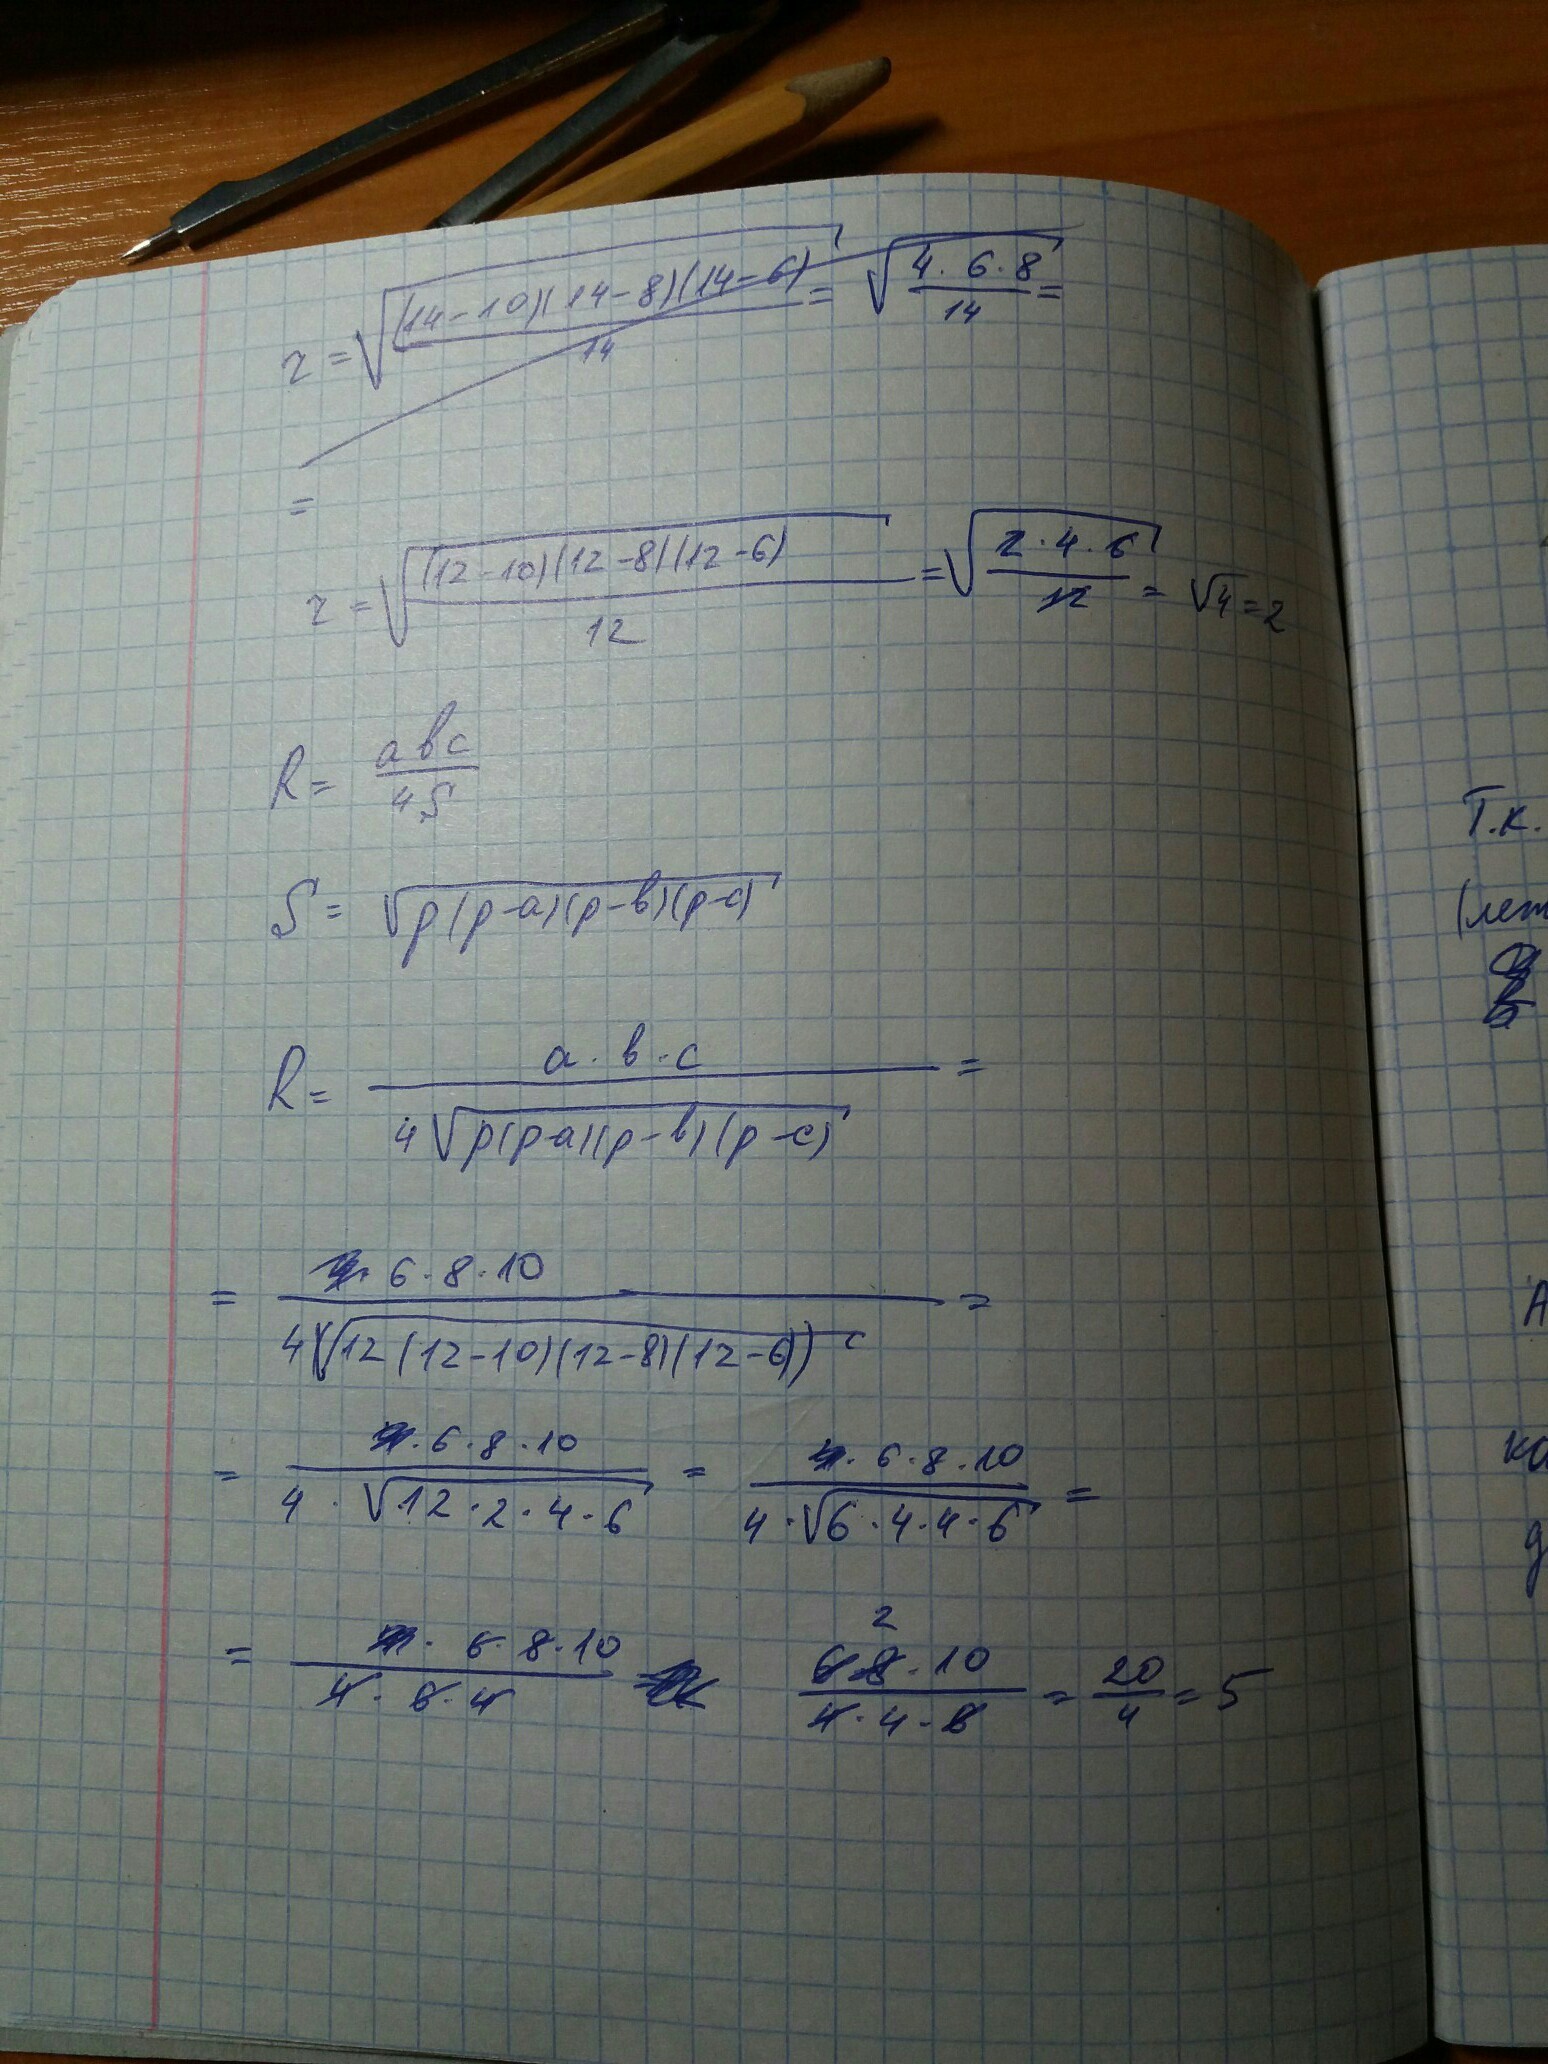 r = √((14-10)(14-8)(14-6)/14) = √(4·6·8/14) =
=
r = √((12-10)(12-8)(12-6)/12) = √(2·4·6/12) = √4 = 2
R = авс/4S
S = √(p(p-a)(p-в)(p-c))
R = а·в·с/(4√(p(p-a)(p-в)(p-c))) =
= 6·8·10/(4(√(12(12-10)(12-8)(12-6)))) =
= 6·8·10/(4·√(12·2·4·6)) = 6·8·10/(4·√(6·4·4·6)) =
2
= 6·8·10/(4·6·4) 6·8·10/(4·4·6) = 20/4 = 5
Т.к.
(леж
А
ко
д